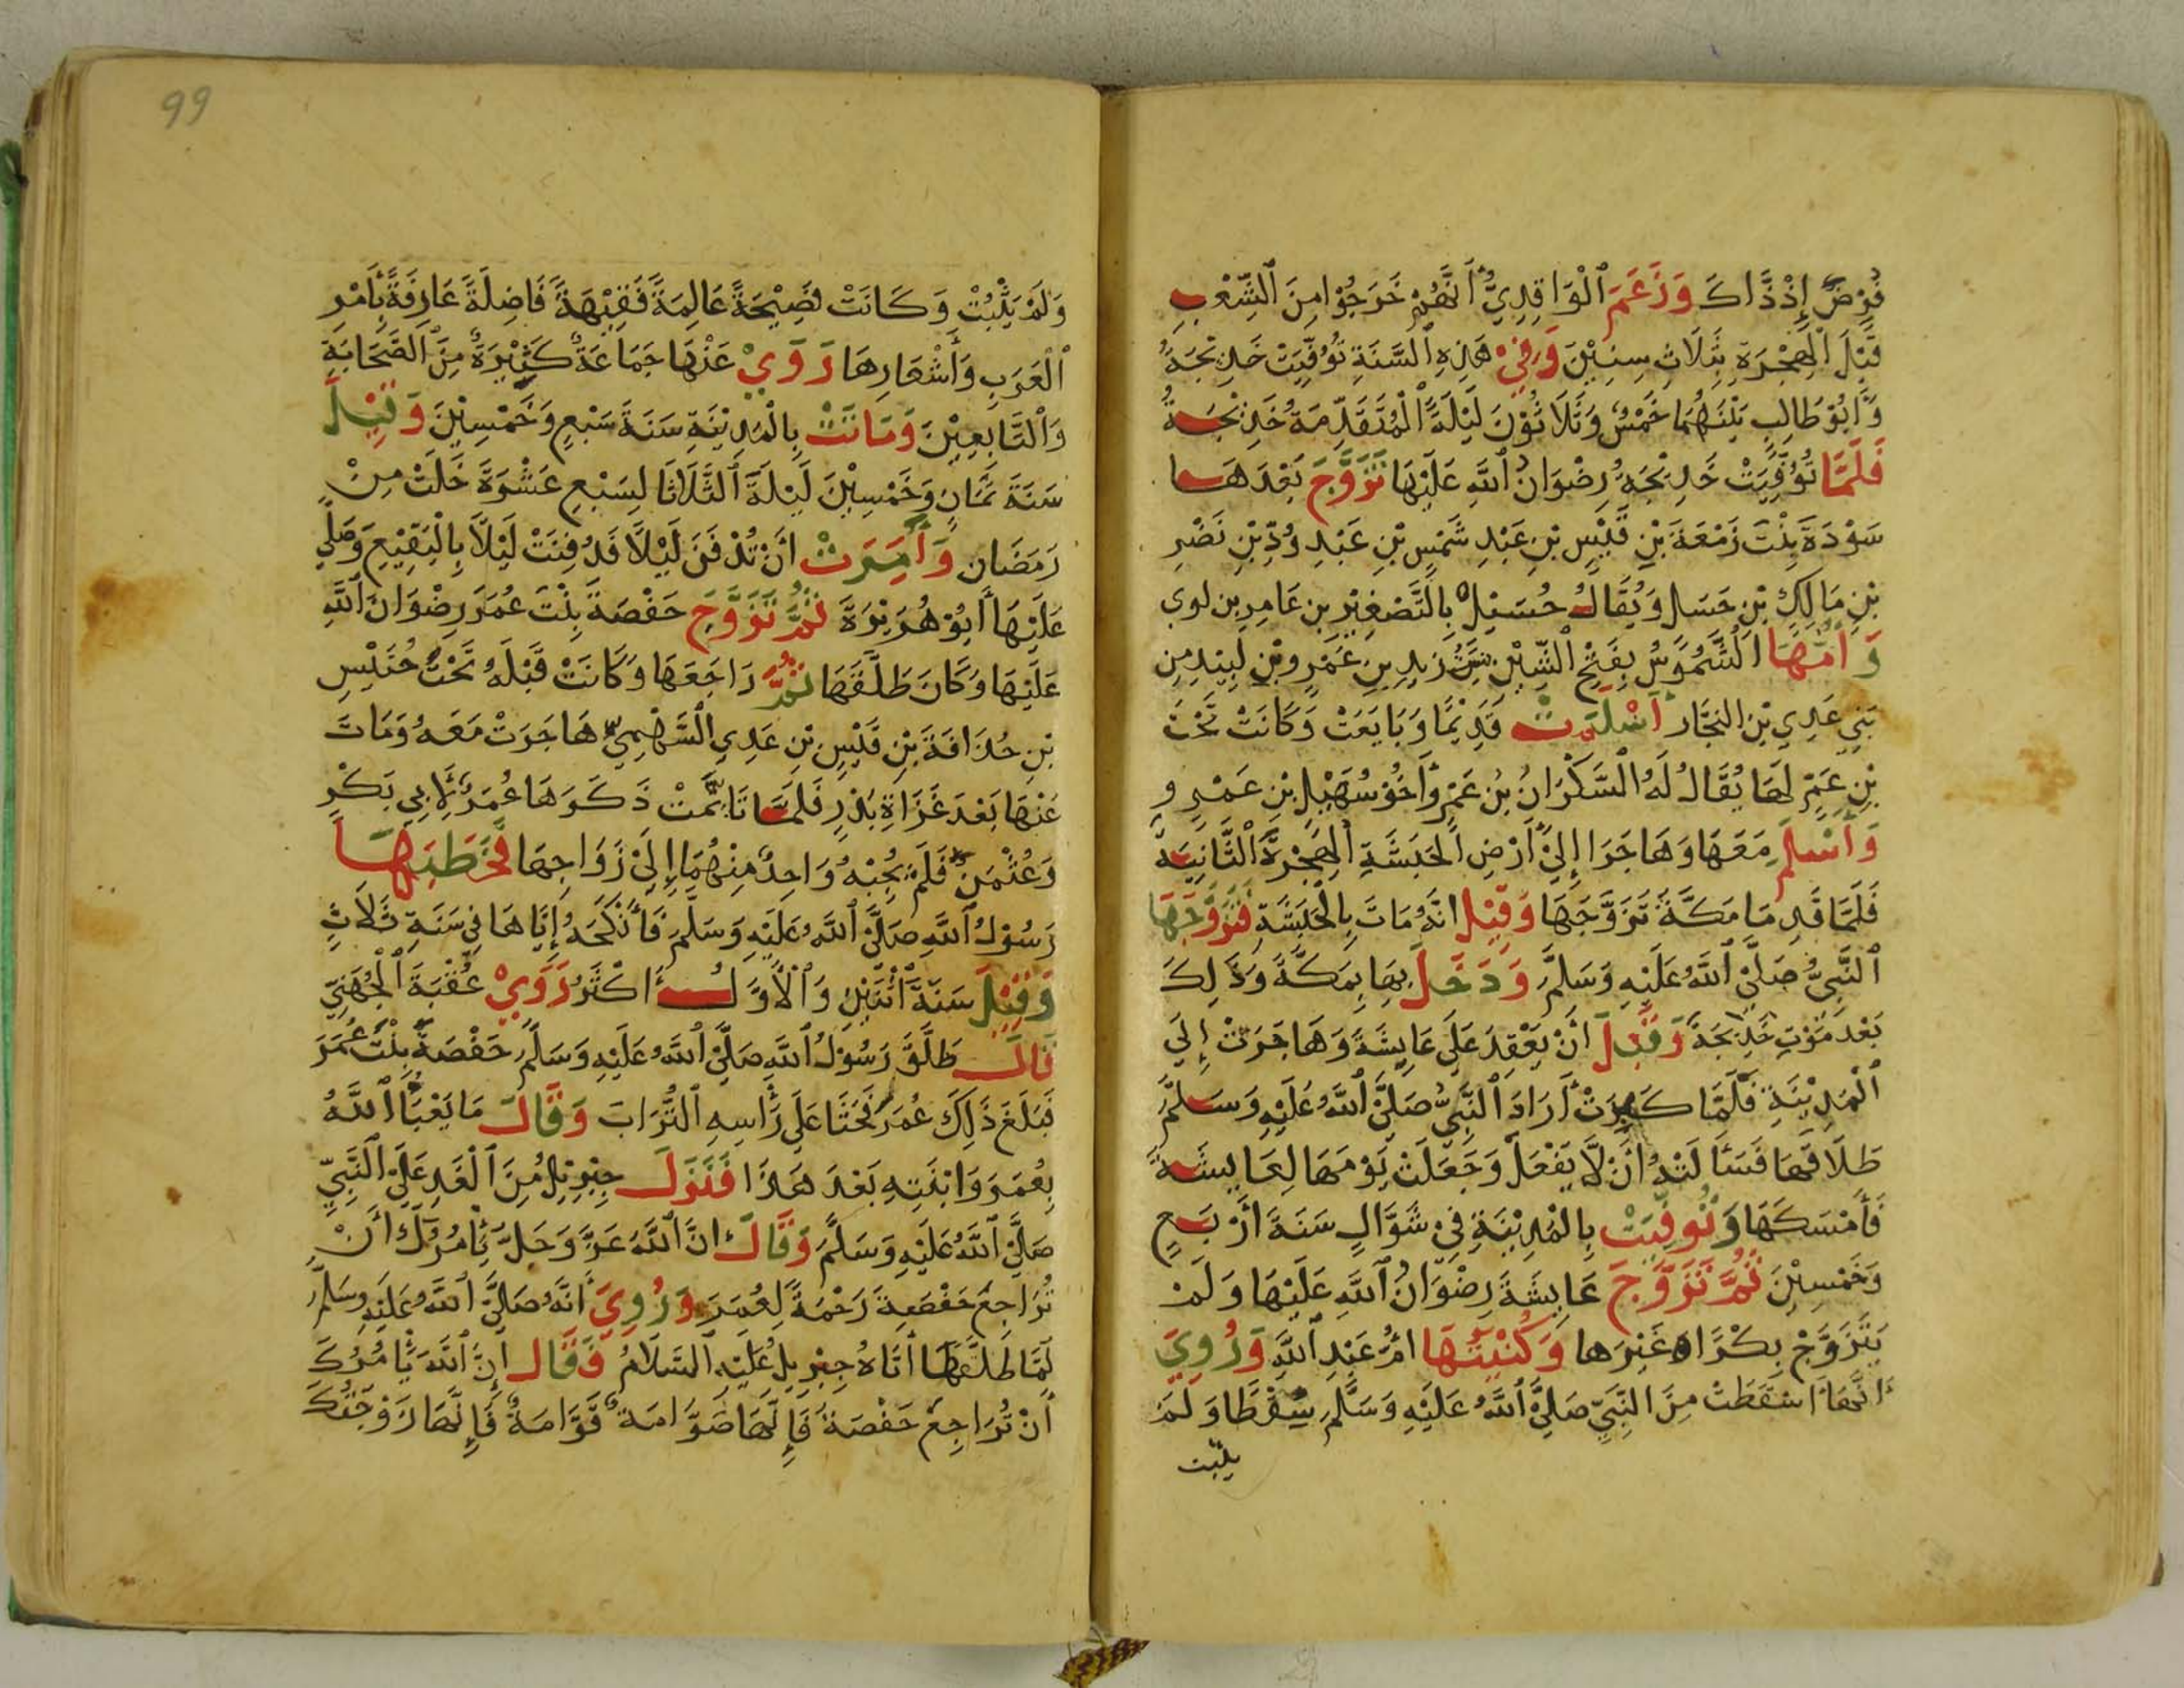 فُرِضَ إِذْ ذَّاكَ وَزَعَمَ ٱلْوَاقِدِيُّ أَنَّهُمْ خَرَجُوْا مِنَ ٱلشِّعْبِ
قَبْلَ ٱلْهِجْرَةِ بِثَلَاثِ سِنِيْنَ وَفِيْ هَذِهِ ٱلسَّنَةِ تُوُفِّيَتْ خَدِيْجَةُ
وَأَبُوْ طَالِبٍ بَيْنَهُمَا خَمْسٌ وَثَلَاثُوْنَ لَيْلَةً ٱلْمُتَقَدِّمَةُ خَدِيْجَةُ
فَلَمَّا تُوُفِّيَتْ خَدِيْجَةُ رِضْوَانُ ٱللَّهِ عَلَيْهَا تَزَوَّجَ بَعْدَهَا
سَوْدَةَ بِنْتَ زَمْعَةَ بْنِ قَيْسِ بْنِ عَبْدِ شَمْسِ بْنِ عَبْدِ وُدِّ بْنِ نَصْرِ
بْنِ مَالِكِ بْنِ حَسَل وَيُقَالُ حُسَيْلٌ بِالتَّصْغِيْرِ بن عَامِرِ بن لوى
وَأُمُّهَا ٱلشَّمُوْسُ بِفَتْحِ ٱلشِّيْنِ بِنْتُ زيد بن عَمْرِو بْنِ لَبِيْد مِن
بَنِي عَدِي بْنِ النجَّار أَسْلَمَتْ قَدِيْمًا وَبَايَعَتْ وَكَانَتْ تَحْتَ
بْنِ عَمٍّ لَهَا يُقَالُ لَهُ ٱلسَّكْرَانُ بْنُ عَمْرٍو أَخُوْ سُهَيْلِ بْنِ عَمْرٍو
وَأَسْلَمَ مَعَهَا وَهَاجَرَا إِلَىْ أَرْضِ ٱلْحَبَشَةِ ٱلْهِجْرَةَ ٱلثَّانِيَةَ
فَلَمَّا قَدِمَا مَكَّةَ تَزَوَّجَهَا وَقِيْلَ انَّهُ مَاتَ بِالْحَبَشَةِ فَتَزَوَّجَهَا
ٱلنَّبِيُّ صَلَّىْ ٱللَّهُ عَلَيْهِ وَسَلَّمَ وَدَخَلَ بِهَا بِمَكَّةَ وَذَلِكَ
بَعْدَ مَوْتِ خَدِيْجَةَ وَقَبْلَ أَنْ يَعْقِدَ عَلَى عَايِشَةَ وَهَاجَرَتْ إِلَى
ٱلْمَدِيْنَةِ فَلَمَّا كَبِرَتْ أَرَادَ ٱلنَّبِيُّ صَلَّىْ ٱللَّهُ عَلَيْهِ وَسَلَّمَ
طَلَاقَهَا فَسَأَلَتْهُ أَنْ لَّا يَفْعَلَ وَجَعَلَتْ يَوْمَهَا لِعَايِشَةَ
فَأَمْسَكَهَا وَتُوُفِّيَتْ بِالْمَدِيْنَةِ فِيْ شَوَّالٍ سَنَةَ أَرْبَعٍ
وَخَمْسِيْنَ ثُمَّ تَزَوَّجَ عَايِشَةَ رِضْوَانُ ٱللَّهِ عَلَيْهَا وَلَمْ
يَتَزَوَّجْ بِكْرًا غَيْرَها وَكُنْيَتُهَا امُّ عَبْدِ ٱللَّهِ وَرُوِيَ
أَنَّهَا أَسْقَطَتْ مِنَ النَّبِيِّ صَلَّىْ ٱللَّهُ عَلَيْهِ وَسَلَّمَ سِقْطًا وَلَمْ
يثبت
99
وَلَمْ يَثْبُتْ وَكَانَتْ فَصِيْحَةً عَالِمَةً فَقِيْهَةً فَاضِلَةً عَارِفَةً بِأَمْرِ
ٱلْعَرَبِ وَأَشْعَارِهَا رَوَيْ عَنْهَا جَمَاعَةٌ كَثِيْرَةٌ مِنَ ٱلصَّحَابَةِ
وَٱلتَّابِعِيْنَ وَمَاتَتْ بِالْمَدِيْنَةِ سَنَةَ سَبْعٍ وَخَمْسِيْنَ وَقِيْلَ
سَنَةَ ثَمَانٍ وَخَمْسِيْنَ لَيْلَةَ ٱلثَّلَاثَا لِسَبْعِ عَشْرَةَ خَلَتْ مِنْ
رَمَضَان وَأَمَرَتْ أَنْ تُدْفَنَ لَيْلًا فَدُفِنَتْ لَيْلًا بِالْبَقِيْعِ وَصَلَّي
عَلَيْهَا أَبُوْ هُرَيْرَةَ ثُمَّ تَزَوَّجَ حَفْصَةَ بِنْتَ عُمَرَ رِضْوَانُ ٱللَّهِ
عَلَيْهَا وَكَانَ طَلَّقَهَا ثُمَّ رَاجَعَهَا وَكَانَتْ قَبْلَهُ تَحْتَ خُنَيْسِ
بْنِ حُذَافَةَ بْنِ قَيْسِ بْنِ عَدِي ٱلسَّهْمِيِّ هَاجَرَتْ مَعَهُ وَمَاتَ
عَنْهَا بَعْدَ غَزَاةِ بَدْرٍ فَلَمَّا تَأَيَّمَتْ ذَكَرَهَا عُمَرُ لِأَبِي بَكْرٍ
وَعُثْمَنَ فَلَمْ يُجِبْهُ وَاحِدٌ مِنْهُمَا إِلَىْ زَوَاجِهَا فَخَطَبَهَا
رَسُوْلُ ٱللَّهِ صَلَّىْ ٱللَّهُ عَلَيْهِ وَسَلَّمَ فَأَنْكَحَهُ إِيَّاهَا فِي سَنَةِ ثَلَاثٍ
وَقِيْلَ سَنَةَ ٱثْنَتَيْنِ وَٱلْأَوَّلُ أَكْثَرُ رَوَيْ عُقْبَةَ ٱلْجُهَنِيّ
قَالَ طَلَّقَ رَسُوْلُ ٱللَّهِ صَلَّىْ ٱللَّهُ عَلَيْهِ وَسَلَّمَ حَفْصَةَ بِنْتَ عُمَرَ
فَبَلَغَ ذَلِكَ عُمَرَ فَحَثَا عَلَى رَأْسِهِ ٱلتُّرَابَ وَقَالَ مَا يَعْبَأُ ٱللَّهُ
بِعُمَرَ وَابْنَتِهِ بَعْدَ هَذَا فَنَزَلَ جِبْرِيْلُ مِنَ ٱلْغَدِ عَلَىْ ٱلنَّبِيِّ
صَلَّىْ ٱللَّهُ عَلَيْهِ وَسَلَّمَ وَقَالَ انَّ ٱللَّهَ عَزَّ وَجَلَّ يَأْمُرُكَ أَنْ
تُرَاجِعَ حَفْصَةَ رَحْمَةً لِعُمَرَ وَرُوِيَ أَنَّهُ صَلَّىْ ٱللَّهُ عَلَيْهِ وَسَلَّمَ
لَمَّا طَلَّقَهَا أَتَاهُ جِبْرِيلُ عَلَيْهِ ٱلسَّلَامُ فَقَالَ إِنَّ ٱللَّهَ يَأْمُرُكَ
أَنْ تُرَاجِعَ حَفْصَةَ فَإِنَّهَا صَوَّامَةٌ قَوَّامَةٌ فَإِنَّهَا زَوْجَتُكَ